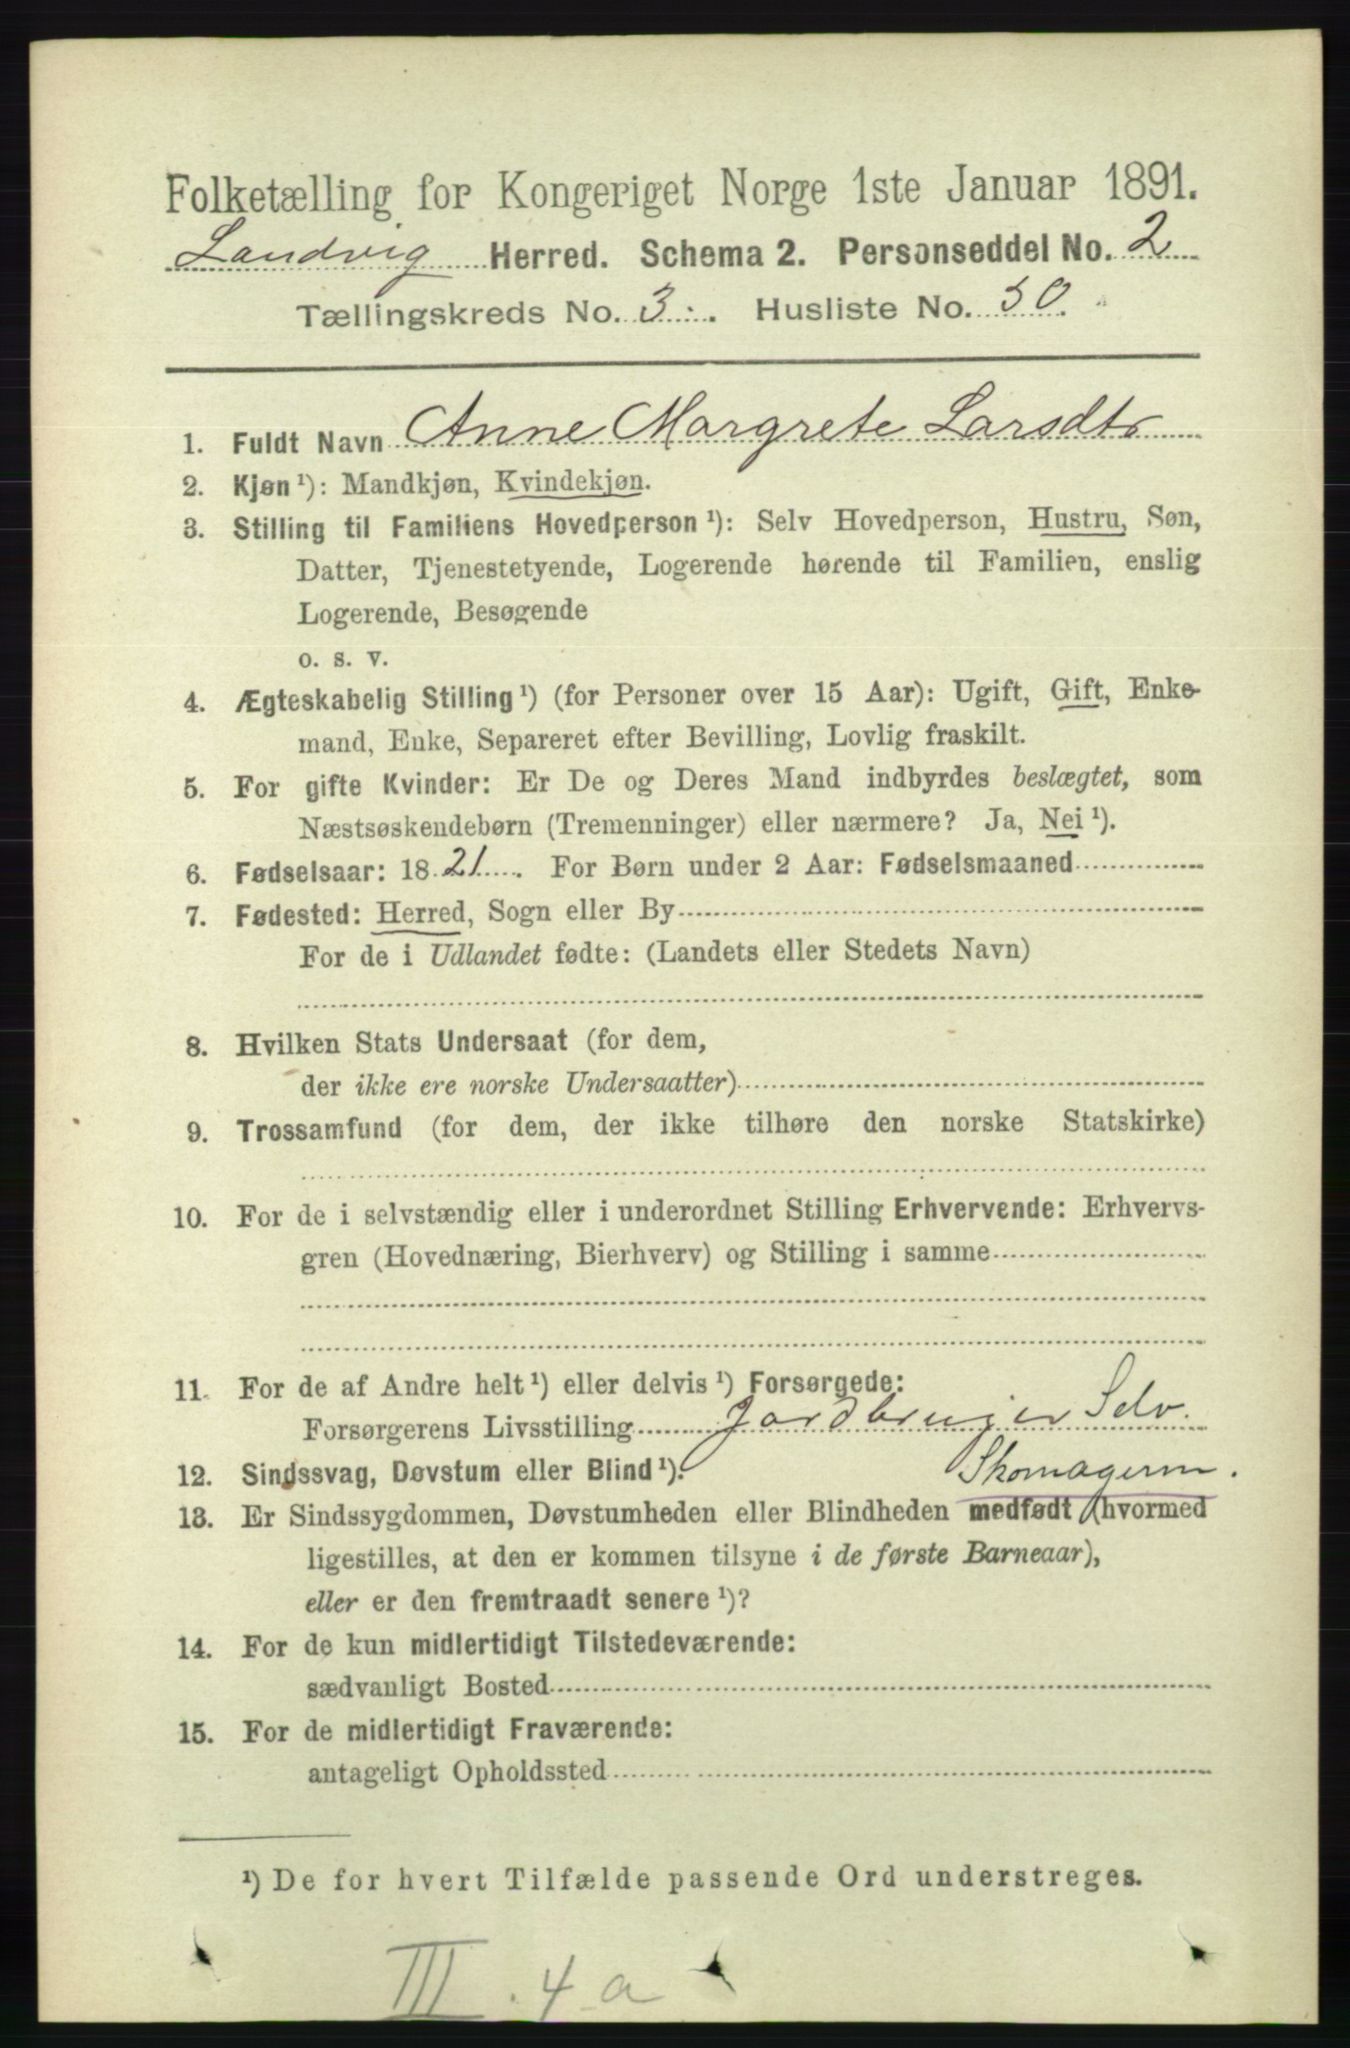 Folketælling for Kongeriget Norge 1ste Januar 1891.
Landvig Herred. Schema 2. Personseddel No. 2
Tællingskreds No. 3. Husliste No. 50.
1. Fuldt Navn Anne Margrete Larsdtr
2. Kjøn¹): Mandkjøn, Kvindekjøn.
3. Stilling til Familiens Hovedperson¹): Selv Hovedperson, Hustru, Søn,
Datter, Tjenestetyende, Logerende hørende til Familien, enslig
Logerende, Besøgende
o. s. v.
4. Ægteskabelig Stilling¹) (for Personer over 15 Aar): Ugift, Gift, Enke-
mand, Enke, Separeret efter Bevilling, Lovlig fraskilt.
5. For gifte Kvinder: Er De og Deres Mand indbyrdes beslægtet, som
Næstsøskendebørn (Tremenninger) eller nærmere? Ja, Nei¹).
6. Fødselsaar: 1821. For Børn under 2 Aar: Fødselsmaaned
7. Fødested: Herred, Sogn eller By
For de i Udlandet fødte: (Landets eller Stedets Navn)
8. Hvilken Stats Undersaat (for dem,
der ikke ere norske Undersaatter)
9. Trossamfund (for dem, der ikke tilhøre den norske Statskirke)
10. For de i selvstændig eller i underordnet Stilling Erhvervende: Erhvervs-
gren (Hovednæring, Bierhverv) og Stilling i samme
11. For de af Andre helt¹) eller delvis¹) Forsørgede:
Forsørgerens Livsstilling Jordbruger Selv.
12. Sindssvag, Døvstum eller Blind¹).
13. Er Sindssygdommen, Døvstumheden eller Blindheden medfødt (hvormed
ligestilles, at den er kommen tilsyne i de første Barneaar),
eller er den fremtraadt senere¹)?
14. For de kun midlertidigt Tilstedeværende:
sædvanligt Bosted
15. For de midlertidigt Fraværende:
antageligt Opholdssted
¹) De for hvert Tilfælde passende Ord understreges.
III. 4 a